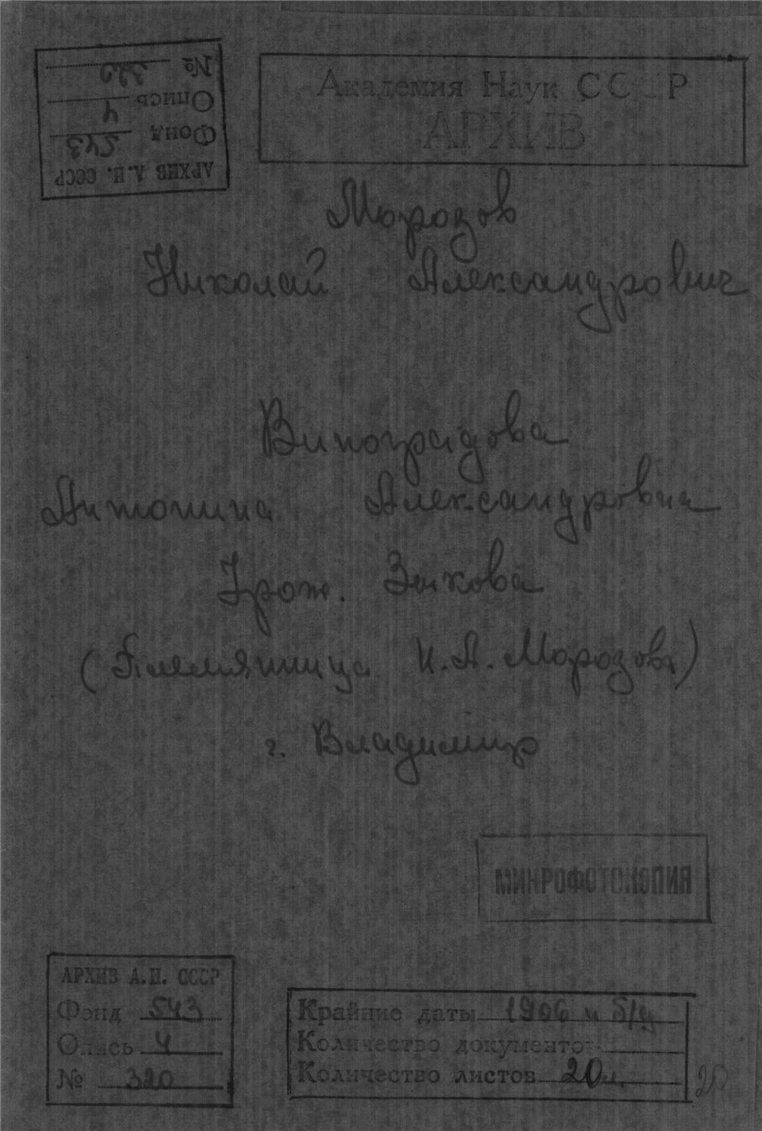 Академия Наук СССР
АРХИВ
№ 320
Опись 4
Фонд 543
АРХИВ А.Н. СССР
Морозов
Николай Александрович
Виноградова
Антонина Александровна
Урож. Зыкова
(Племянница Н.А. Морозова)
г. Владимир
МИКРОФОТОКОПИЯ
АРХИВ А.Н. СССР
Фонд 543
Опись 4
№ 320
Крайние даты 1906 и б/д
Количество документов
Количество листов 20 л.
20